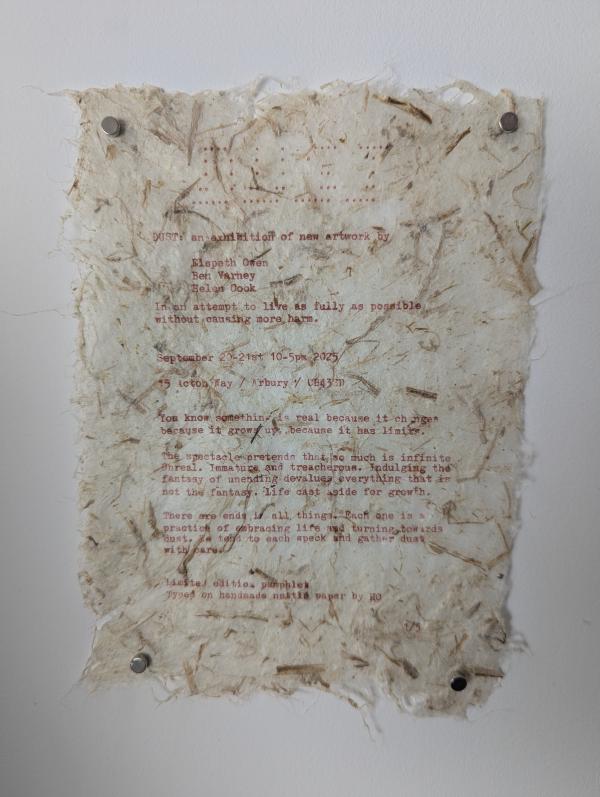 DUST: an exhibition of new artwork by
Elspeth Owen
Ben Varney
Helen Cook
In an attempt to live as fully as possible
without causing more harm.
September 20-21st 10-5pm 2025
15 Acton Way / Arbury /
You know something is real because it changes
because it grows up, because it has limits.
The spectacle pretends that so much is infinite
Unreal. Immature and treacherous. Indulging the
fantasy of unending devalues everything that is
not the fantasy. Life cast aside for growth.
There are ends in all things. Each one is a
practice of embracing life and turning towards
dust. We tend to each speck and gather dust
with care.
Limited edition pamphlet
Typed on handmade nettle paper by HC
1/5